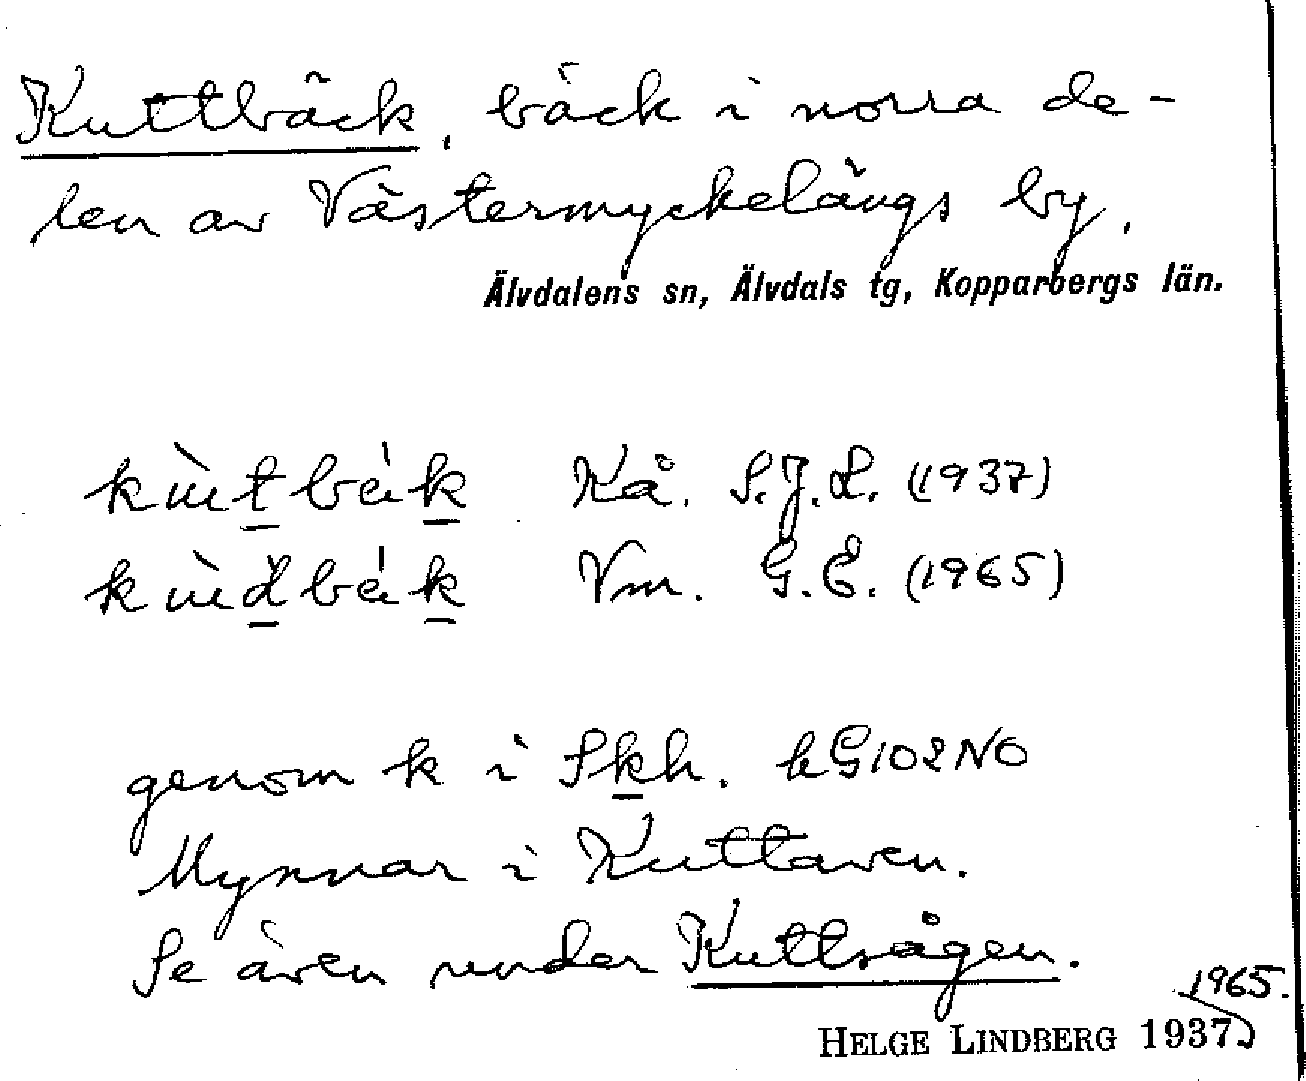 Kuttbäck, bäck i norra de-
len av Västermyckelängs by.
Älvdalens sn, Älvdals tg, Kopparbergs län.
Kå. S.J.L. (1937)
Vm. G.E. (1965)
genom k i Skh. bG102NO
Mynnar i Kuttaven.
Se även under Kuttsågen.
1965.
HELGE LINDBERG 1937